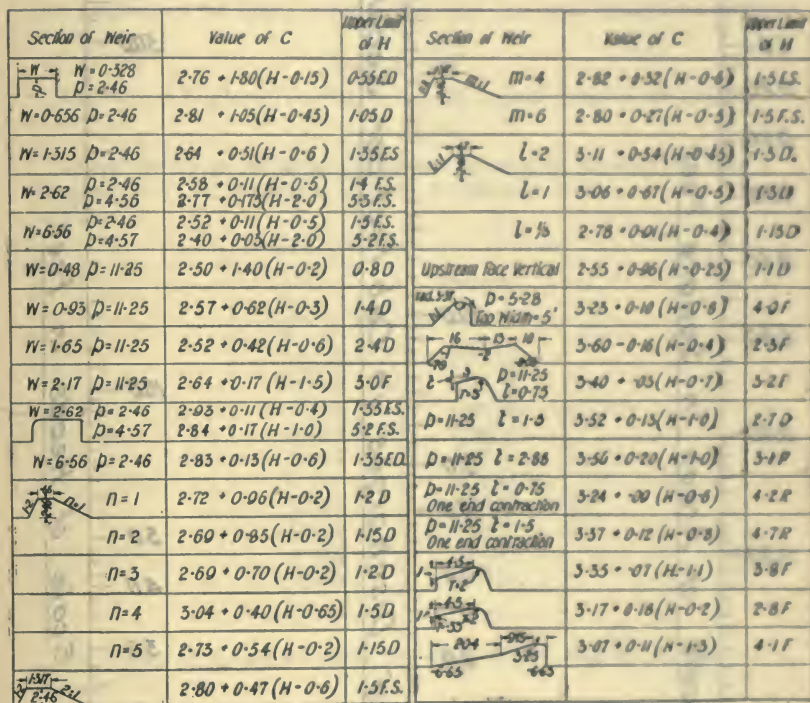 Section of Weir Value of C Upper Limit of H
W W=0·328 p=2·46 2·76 + 1·80(H-0·15) 0·55 E.D
W=0·656 p=2·46 2·81 + 1·05(H-0·45) 1·05 D
W=1·315 p=2·46 2·64 + 0·51(H-0·6) 1·35 E.S
W=2·62 p=2·46 2·58 + 0·11(H-0·5) 1·4 E.S.
p=4·56 2·77 + 0·175(H-2·0) 5·3 F.S.
W=6·56 p=2·46 2·52 + 0·11(H-0·5) 1·5 E.S
p=4·57 2·40 + 0·05(H-2·0) 5·2 F.S.
W=0·48 p=11·25 2·50 + 1·40(H-0·2) 0·8 D
W=0·93 p=11·25 2·57 + 0·62(H-0·3) 1·4 D
W=1·65 p=11·25 2·52 + 0·42(H-0·6) 2·4 D
W=2·17 p=11·25 2·64 + 0·17(H-1·5) 3·0 F
W=2·62 p=2·46 2·93 + 0·11(H-0·4) 1·35 E.S.
p=4·57 2·84 + 0·17(H-1·0) 5·2 F.S.
W=6·56 p=2·46 2·83 + 0·13(H-0·6) 1·35 E.D.
n=1 2·72 + 0·96(H-0·2) 1·2 D
n=2 2·60 + 0·85(H-0·2) 1·15 D
n=3 2·60 + 0·70(H-0·2) 1·2 D
n=4 3·04 + 0·40(H-0·65) 1·5 D
n=5 2·73 + 0·54(H-0·2) 1·15 D
1·317 2·46 2:1 2·80 + 0·47(H-0·6) 1·5 F.S.
Section of Weir Value of C Upper Limit of H
m:1 m=4 2·82 + 0·32(H-0·6) 1·5 E.S.
m=6 2·80 + 0·27(H-0·5) 1·5 F.S.
l:1 l=2 3·11 + 0·54(H-0·45) 1·5 D.
l=1 3·06 + 0·67(H-0·5) 1·3 D
2·78 + 0·01(H-0·4) 1·15 D
Upstream Face Vertical 2·55 + 0·96(H-0·25) 1·1 D
p=5·28 Top Width=5' 3·23 + 0·10(H-0·8) 4·0 F
16 13 10 3·60 - 0·16(H-0·4) 2·3 F
p=11·25 l=0·75 3·40 + ·05(H-0·7) 3·2 F
p=11·25 l=1·5 3·52 + 0·15(H-1·0) 2·7 D
p=11·25 l=2·88 3·56 + 0·20(H-1·0)
p=11·25 l=0·75
One end contraction 3·24 + ·09 (H-0·6) 4·2 R
p=11·25 l=1·5
One end contraction 3·37 + 0·12 (H-0·8) 4·7 R
4·5 3·35 + ·07 (H-1·1) 3·8 F
4·5 3·17 + 0·18(H-0·2) 2·8 F
20·4 3·25 6·65 6·65 3·07 + 0·11(H-1·3) 4·1 F